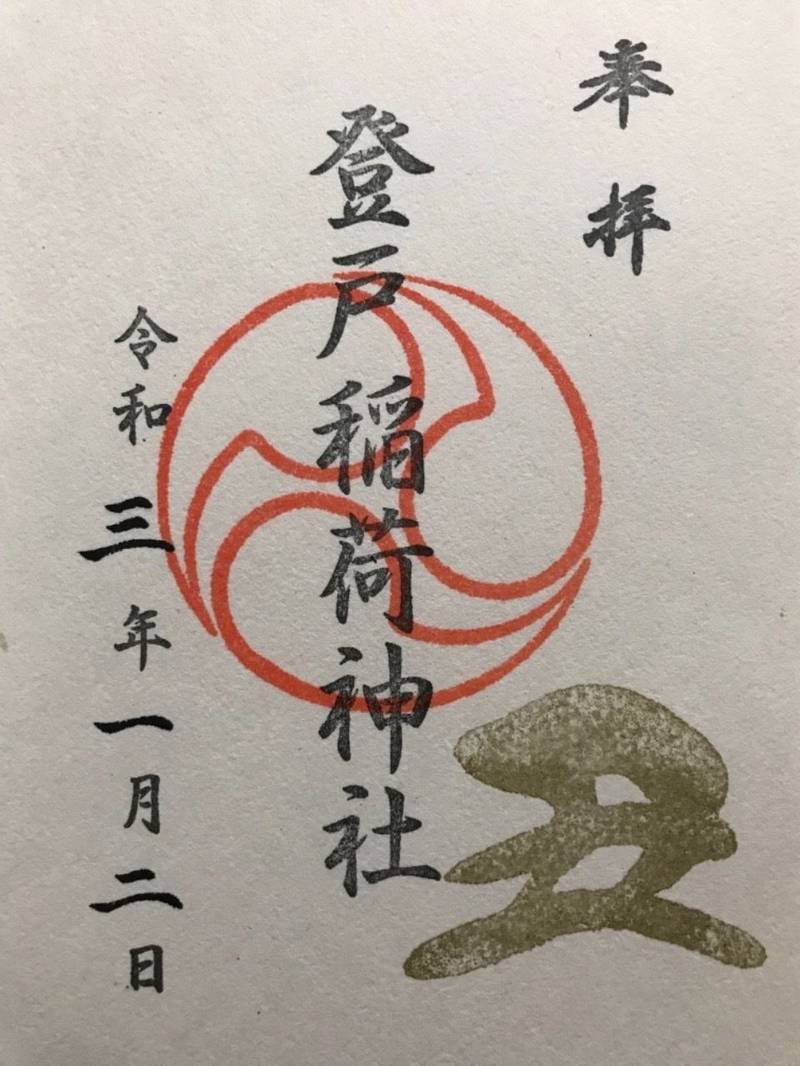 奉拝
登戸稲荷神社
令和三年一月二日
丑